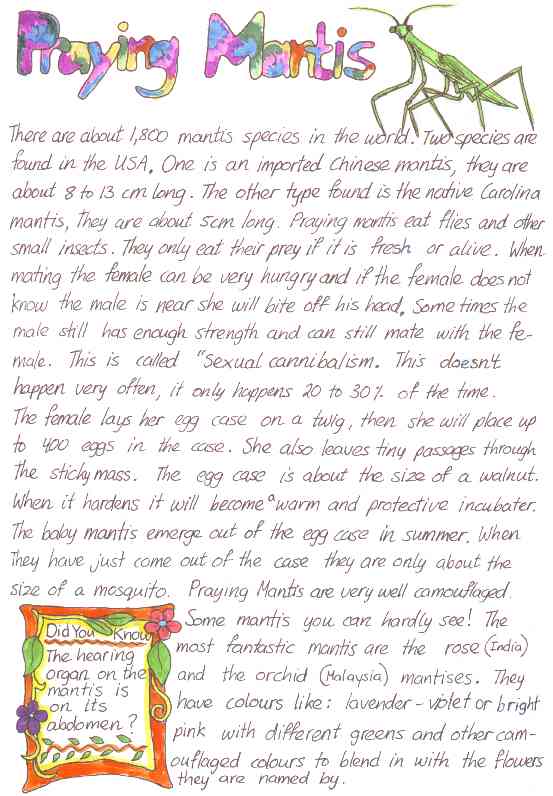 Praying Mantis
There are about 1,800 mantis species in the world. Two species are
found in the USA. One is an imported Chinese mantis, they are
about 8 to 13 cm long. The other type found is the native Carolina
mantis, They are about 5cm long. Praying mantis eat flies and other
small insects. They only eat their prey if it is fresh or alive. When
mating the female can be very hungry and if the female does not
know the male is near she will bite off his head. Some times the
male still has enough strength and can still mate with the fe-
male. This is called "Sexual cannibalism. This doesn't
happen very often, it only happens 20 to 30% of the time.
The female lays her egg case on a twig, then she will place up
to 400 eggs in the case. She also leaves tiny passages through
the sticky mass. The egg case is about the size of a walnut.
When it hardens it will become a warm and protective incubater.
The baby mantis emerge out of the egg case in summer. When
They have just come out of the case they are only about the
size of a mosquito. Praying Mantis are very well camouflaged.
Some mantis you can hardly see! The
most fantastic mantis are the rose (India)
and the orchid (Malaysia) mantises. They
have colours like: lavender - violet or bright
pink with different greens and other cam-
ouflaged colours to blend in with the flowers
they are named by.
Did You Know
The hearing
organ on the
mantis is
on its
abdomen?